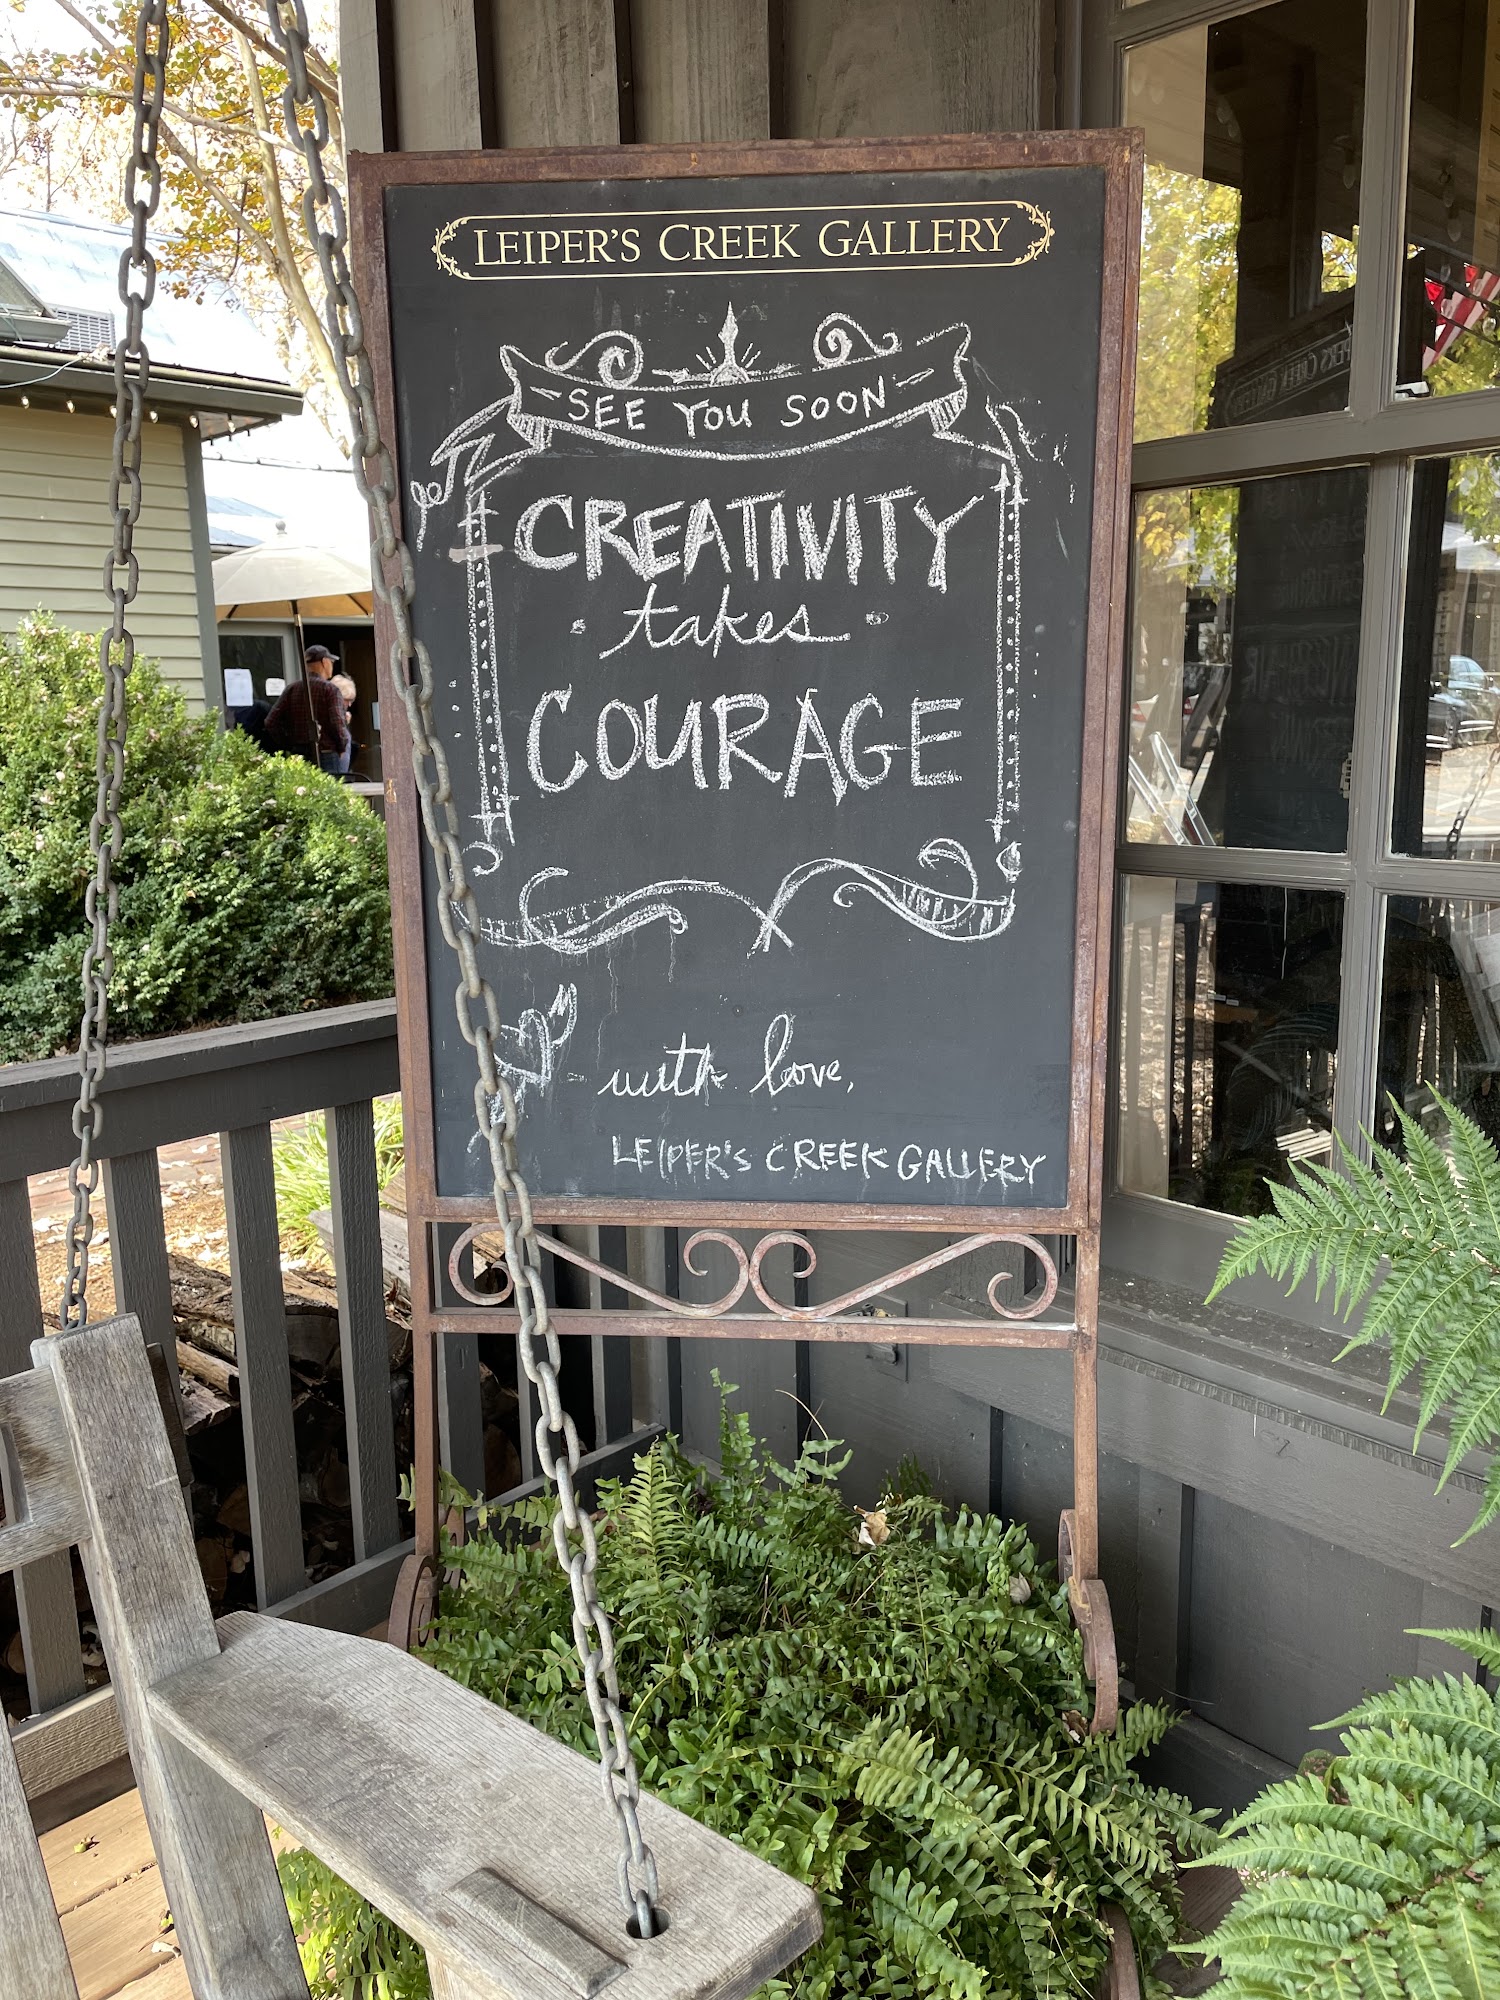 LEIPER'S CREEK GALLERY
SEE YOU SOON
CREATIVITY
takes
COURAGE
with love,
LEIPER'S CREEK GALLERY